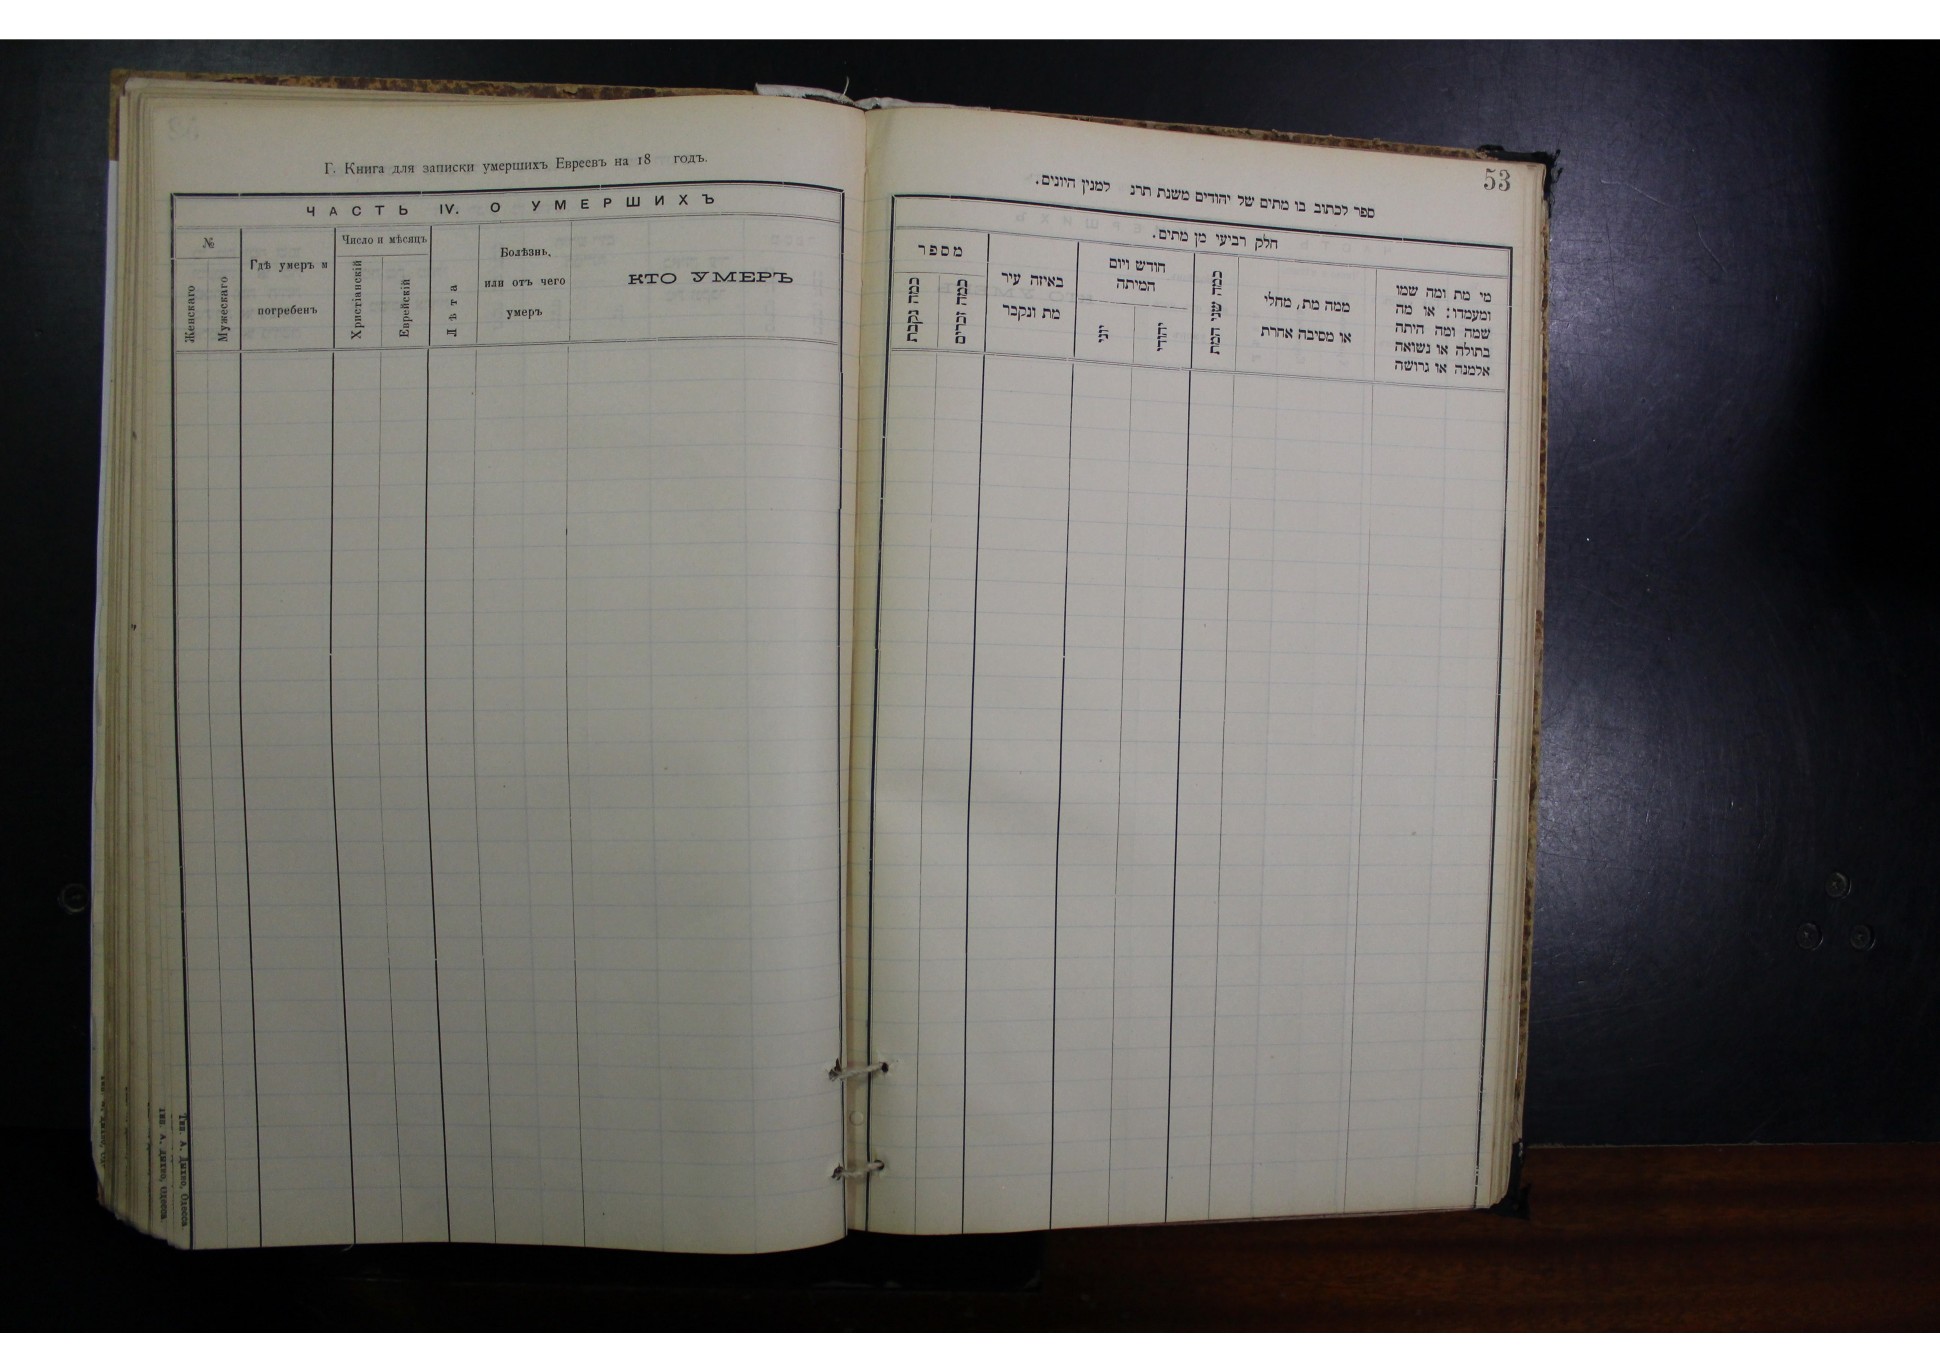 Г. Книга для записки умершихъ Евреевъ на 18 годъ.
ЧАСТЬ IV. О УМЕРШИХЪ
№
Женскаго
Мужескаго
Гдѣ умеръ и
погребенъ
Число и мѣсяцъ
Христіанскій
Еврейскій
Лѣта
Болѣзнь,
или отъ чего
умеръ
КТО УМЕРЪ
Тип. А. Дыхно, Одесса
53
ספר לכתוב בו מתים של יהודים משנת תרנ למנין היונים.
חלק רביעי מן מתים.
מספר
כמה נקבת
כמה זכרים
באיזה עיר
מת ונקבר
חודש ויום
המיתה
יוני
יהודי
כמה שני המת
ממה מת, מחלי
או מסיבה אחרת
מי מת ומה שמו
ומעמדו: או מה
שמה ומה היתה
בתולה או נשואה
אלמנה או גרושה